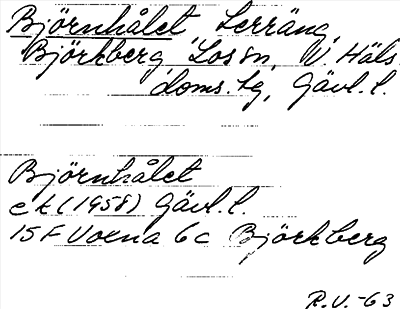 Björnhålet, Lerräng,
Björkberg, Los sn, V. Häls.
doms.tg, Gävl.l.
Björnhålet
ek (1958) Gävl.l.
15F Voxna 6c Björkberg
R.V. -63